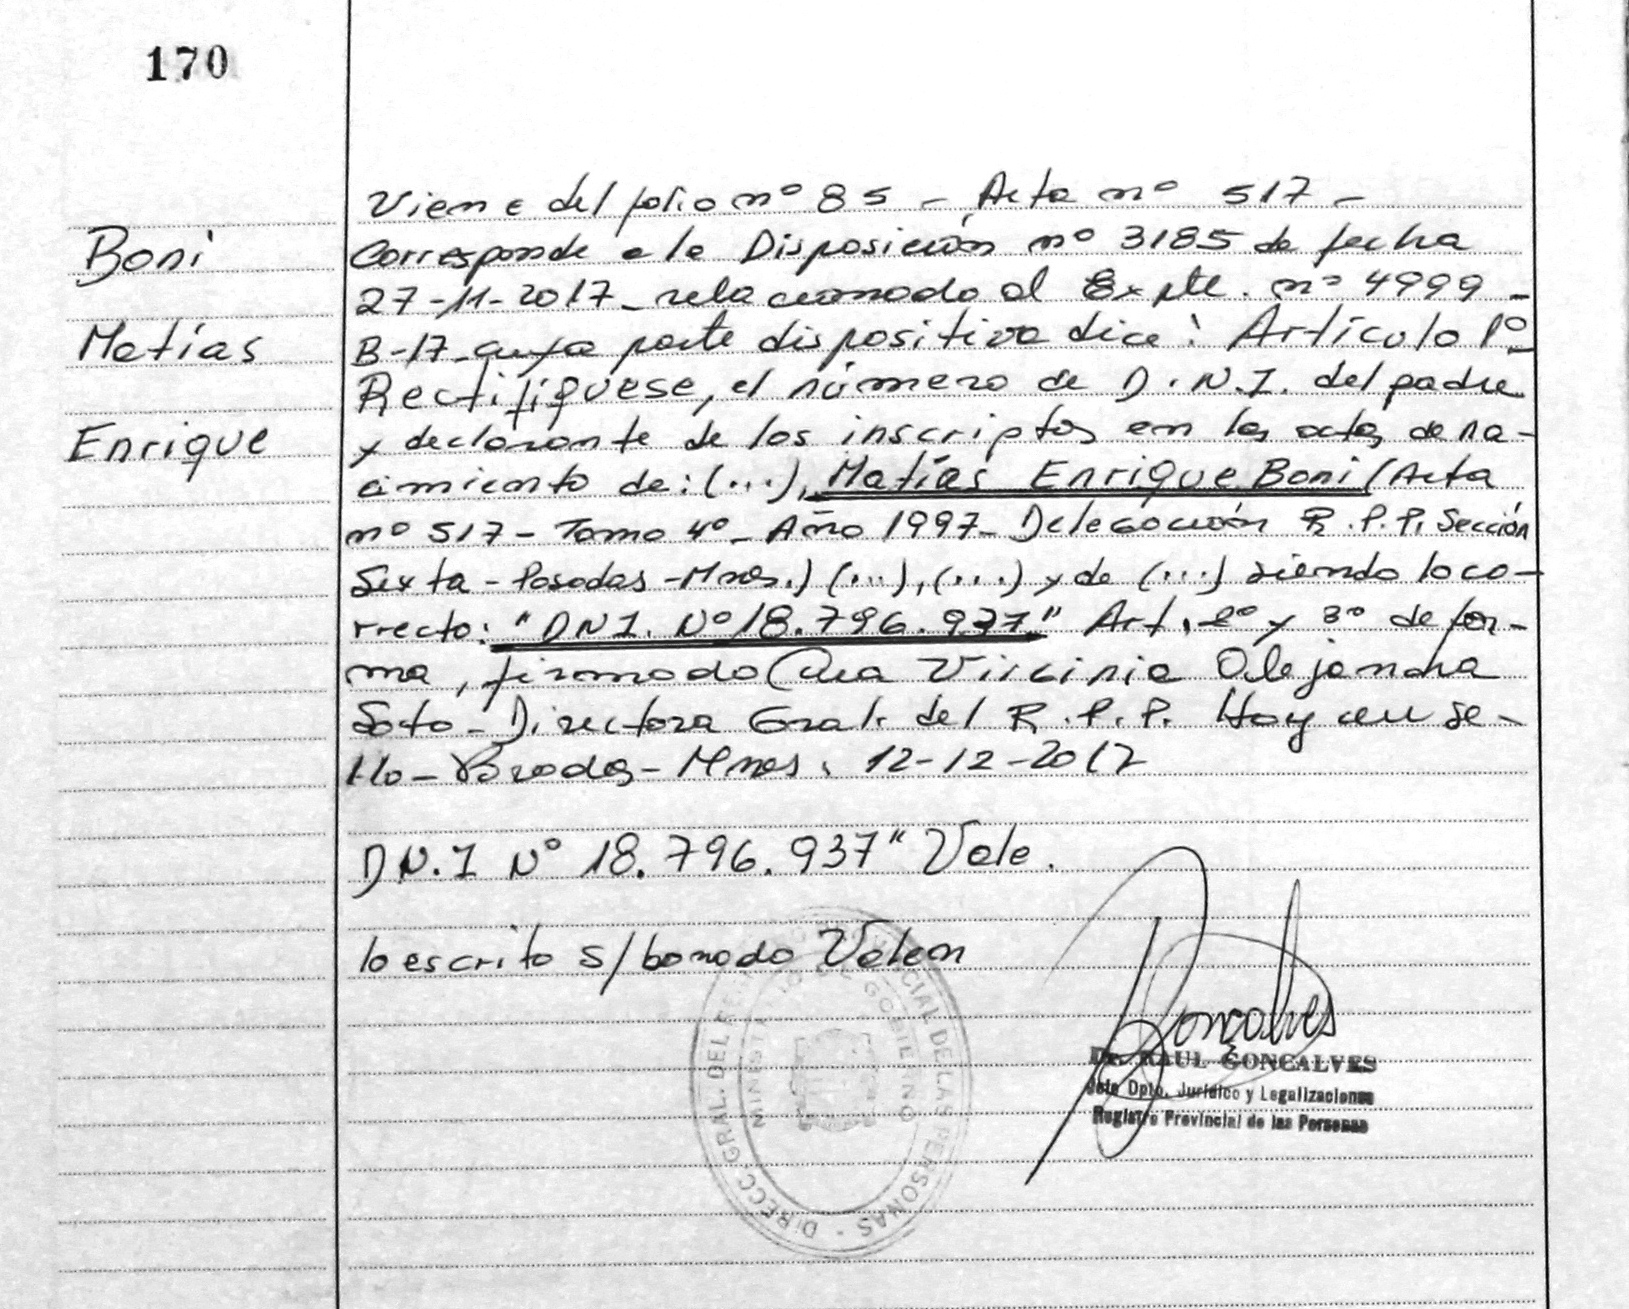 170
Boni
Matías
Enrique
Viene del folio nº 85 - Acta nº 517 -
Corresponde a la Disposición nº 3185 de fecha
27-11-2017 - relacionado al Expte. nº 4999 -
B-17 - cuya parte dispositiva dice: Artículo 1º
Rectifíquese, el número de D.N.I. del padre
y declarante de los inscriptos en las actas de na-
cimiento de: (...), Matías Enrique Boni (Acta
nº 517 - Tomo 4º - Año 1997 - Delegación R.P.P. Sección
Sexta - Posadas - Mnes.) (...), (...) y de (...) siendo lo co-
rrecto: "DNI. Nº 18.796.937" Art. 2º y 3º de for-
ma, firmado Dra Virginia Alejandra
Soto - Directora Gral. del R.P.P. Hoy en Se-
llo - Posadas - Mnes. 12-12-2017
D.N.I Nº 18.796.937" Vale.
lo escrito s/borrado Valen
Gonçalves
Dr. RAUL GONCALVES
Jefe Dpto. Jurídico y Legalizaciones
Registro Provincial de las Personas
DIRECC. GRAL. DEL PROVINCIAL DE LAS PERSONAS -
MINISTERIO DE GOBIERNO